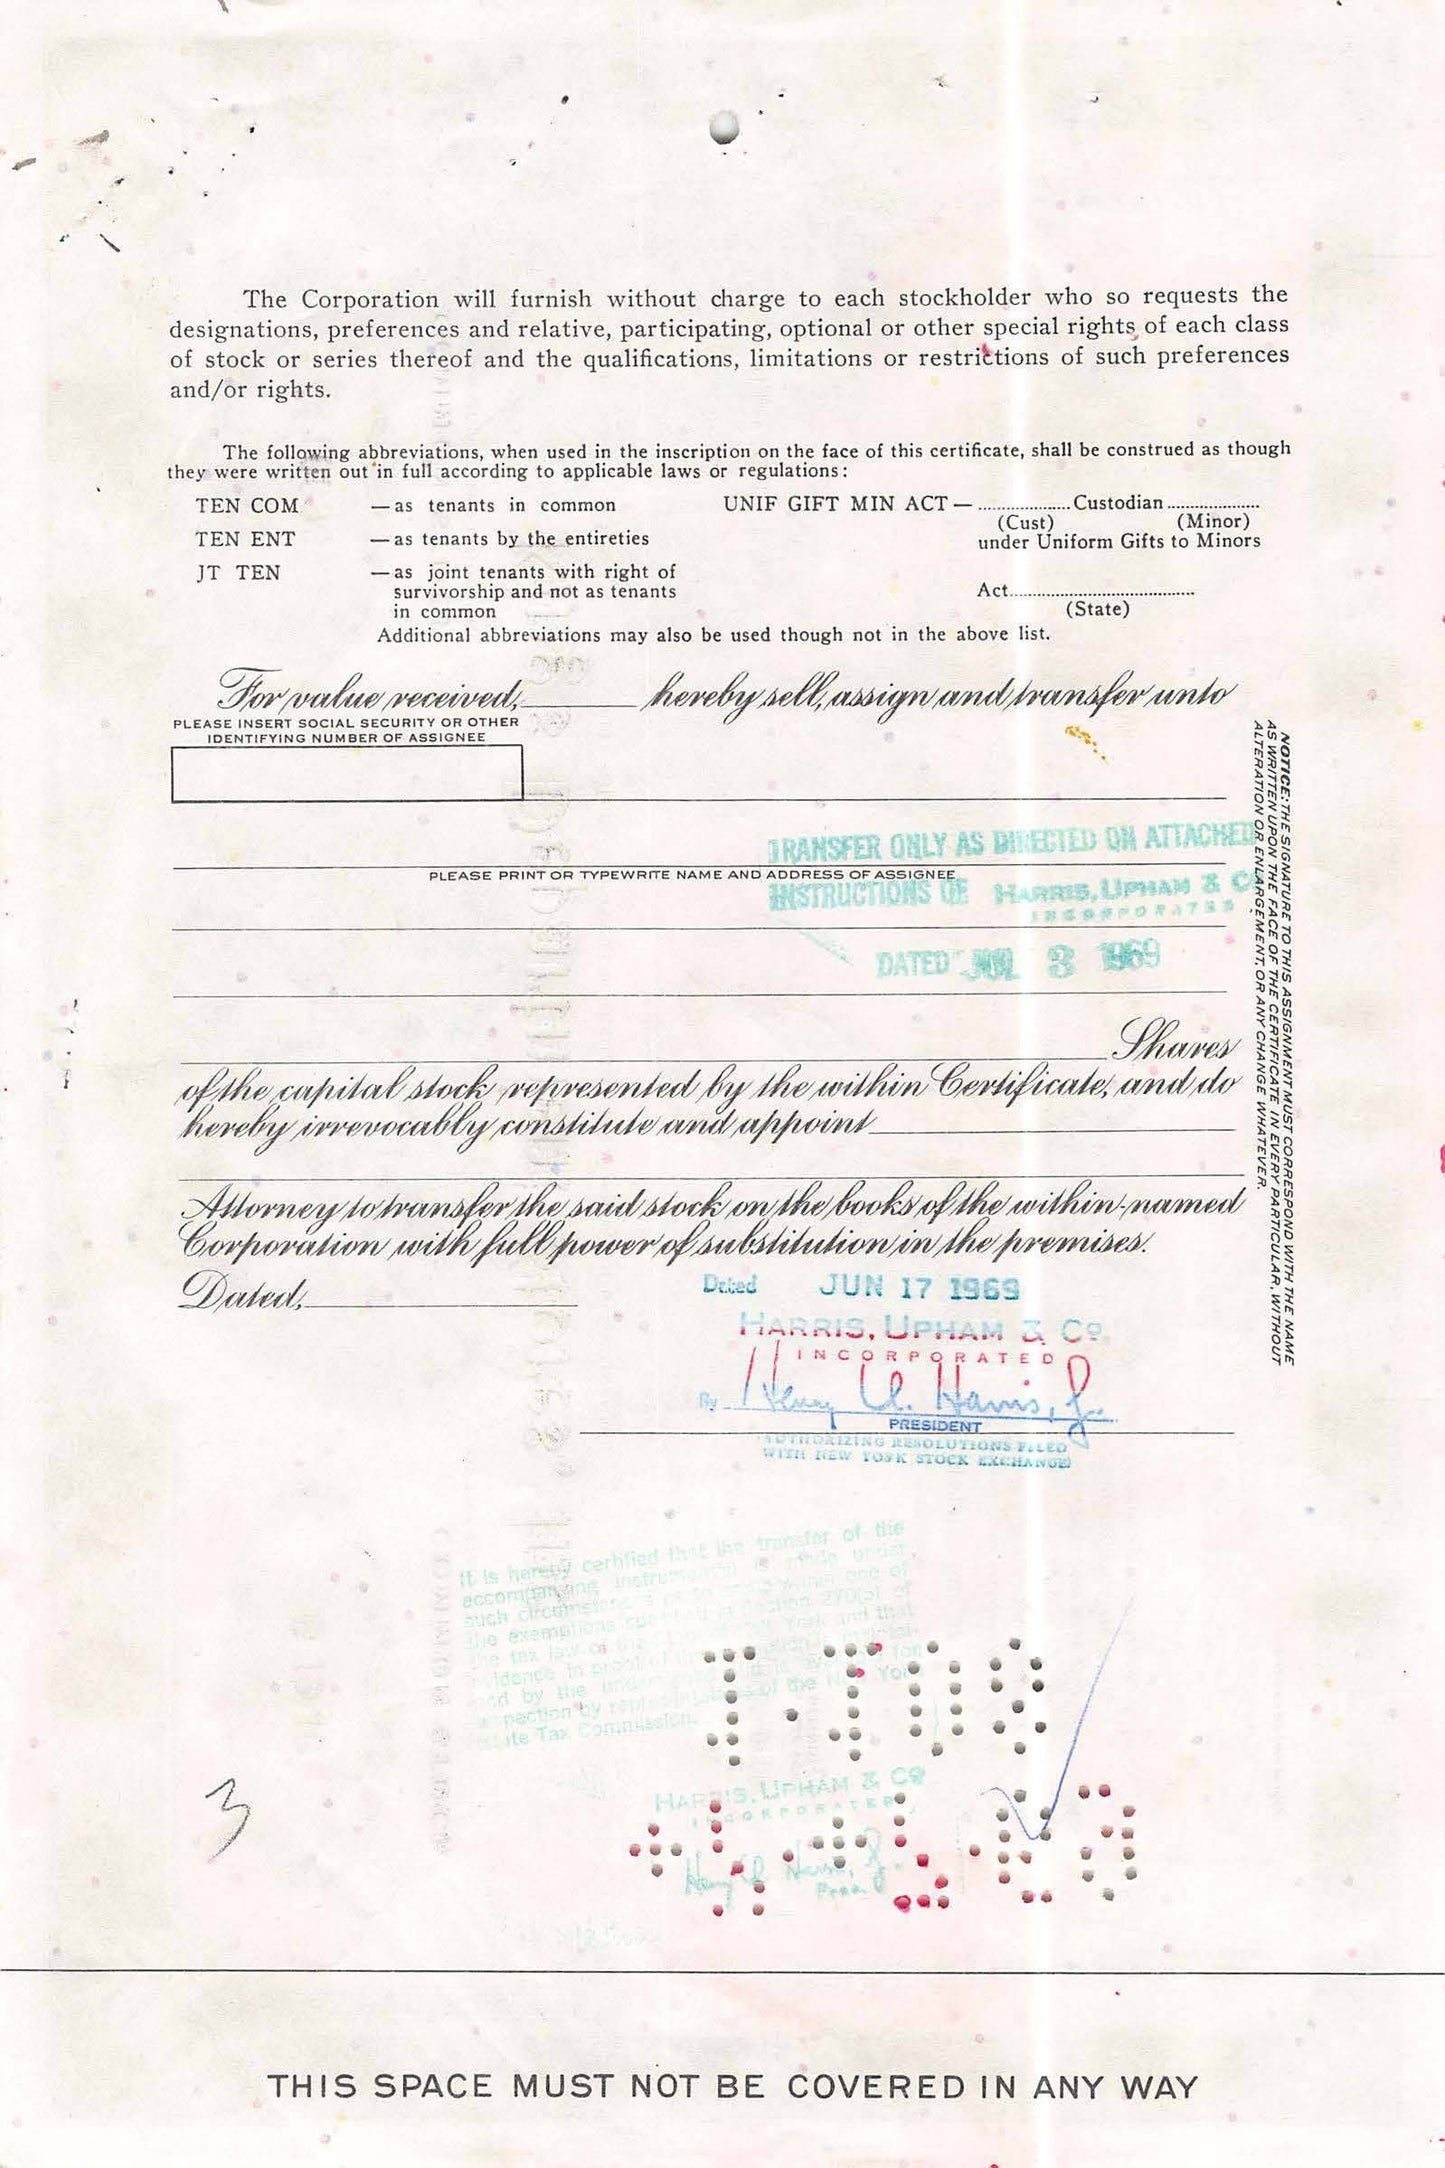 The Corporation will furnish without charge to each stockholder who so requests the
designations, preferences and relative, participating, optional or other special rights of each class
of stock or series thereof and the qualifications, limitations or restrictions of such preferences
and/or rights.
The following abbreviations, when used in the inscription on the face of this certificate, shall be construed as though
they were written out in full according to applicable laws or regulations:
TEN COM —as tenants in common
TEN ENT —as tenants by the entireties
JT TEN —as joint tenants with right of
survivorship and not as tenants
in common
UNIF GIFT MIN ACT— .................... Custodian ....................
(Cust) (Minor)
under Uniform Gifts to Minors
Act........................................
(State)
Additional abbreviations may also be used though not in the above list.
For value received, ________ hereby sell, assign and transfer unto
PLEASE INSERT SOCIAL SECURITY OR OTHER
IDENTIFYING NUMBER OF ASSIGNEE
TRANSFER ONLY AS DIRECTED ON ATTACHED
PLEASE PRINT OR TYPEWRITE NAME AND ADDRESS OF ASSIGNEE
INSTRUCTIONS OF HARRIS, UPHAM & CO
INCORPORATED
DATED JUL 3 1969
Shares
of the capital stock represented by the within Certificate, and do
hereby irrevocably constitute and appoint
Attorney to transfer the said stock on the books of the within-named
Corporation with full power of substitution in the premises.
Dated,
Dated JUN 17 1969
HARRIS, UPHAM & CO.
INCORPORATED
By Henry U. Harris, Jr.
PRESIDENT
AUTHORIZING RESOLUTIONS FILED
WITH NEW YORK STOCK EXCHANGE
NOTICE: THE SIGNATURE TO THIS ASSIGNMENT MUST CORRESPOND WITH THE NAME
AS WRITTEN UPON THE FACE OF THE CERTIFICATE IN EVERY PARTICULAR, WITHOUT
ALTERATION OR ENLARGEMENT, OR ANY CHANGE WHATEVER.
It is hereby certified that the transfer of the
accompanying instrument is made under
such circumstances
the exemptions section 270(5) of
the tax law of York and that
evidence in proof of
and by the for
inspection by of the New York
State Tax Commission.
HARRIS, UPHAM & CO
INCORPORATED
Henry U. Harris, Jr.
Pres.
3
THIS SPACE MUST NOT BE COVERED IN ANY WAY